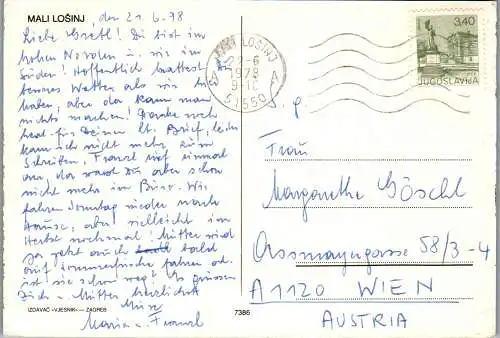 MALI LOŠINJ, den 21.6.78
Liebe Gretl! Du bist im
hohen Norden u. wir im
Süden! Hoffentlich hattest Du
besseres Wetter als wir
haben, aber da kann man
nichts machen! Danke noch
herzl. für Deinen lb. Brief, leider
kam ich nicht mehr zum
Schreiben, Franzl rief einmal
an, da warst Du aber schon
nicht mehr im Büro. Wir
fahren Sonntag wieder nach
Hause, aber vielleicht im
Herbst nochmal! Mutter wird
ja jetzt auch bald
auf Sommerfrische fahren od.
ist sie schon weg? Es grüssen
Dich u. Mutter herzlichst
Maria u. Franzl
MALI LOŠINJ
22-6
1978
9-10
A A
51550
3.40
JUGOSLAVIJA
Frau
Margarethe Göschl
Assmayergasse 58/3-4
A 1120 WIEN
AUSTRIA
IZDAVAČ »VJESNIK« — ZAGREB
7386